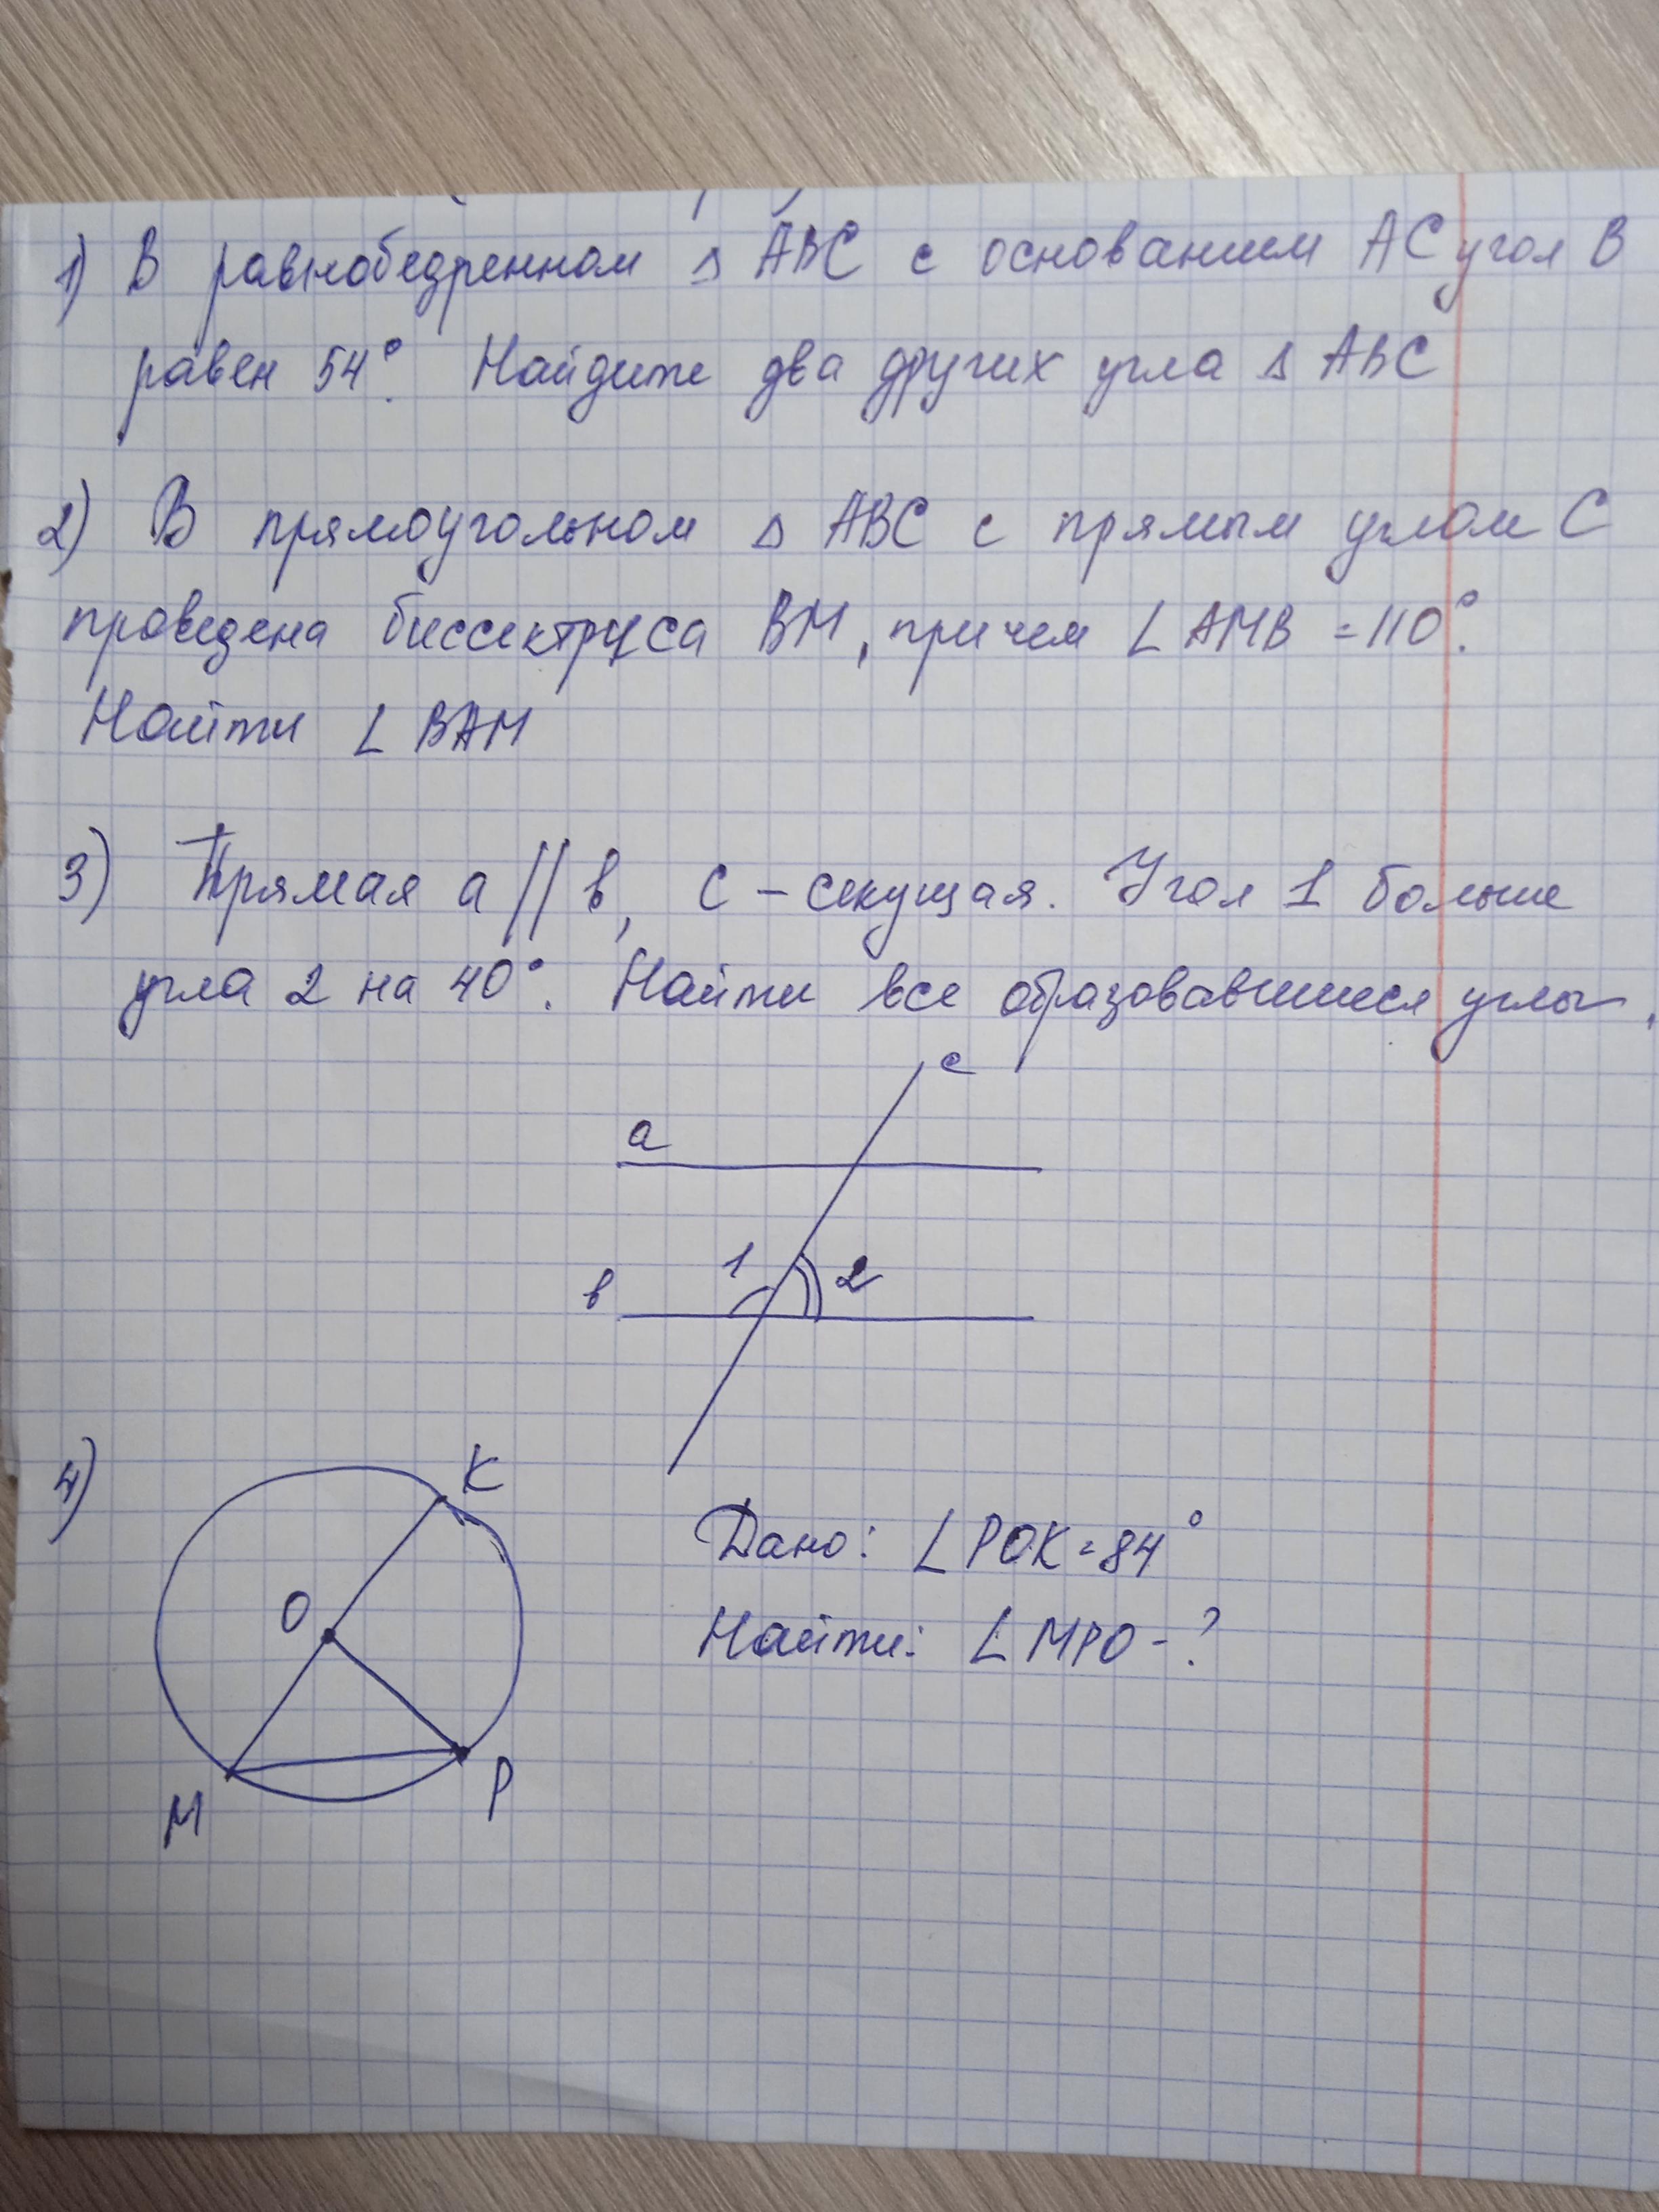 1) В равнобедренном △ ABC с основанием AC угол B
равен 54°. Найдите два других угла △ ABC
2) В прямоугольном △ ABC с прямым углом C
проведена биссектриса BM, причем ∠ AMB = 110°.
Найти ∠ BAM
3) Прямая a || b, c – секущая. Угол 1 больше
угла 2 на 40°. Найти все образовавшиеся углы.
c
a
1 2
b
4)
K
Дано: ∠ POK = 84°
O
Найти: ∠ MPO - ?
M P